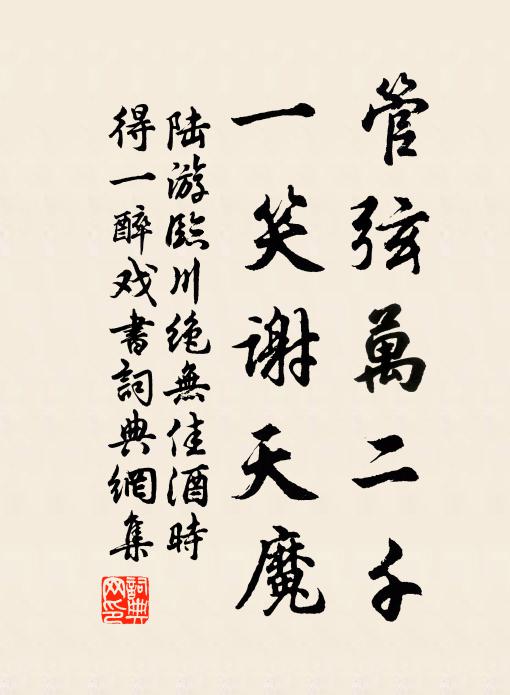 管弦萬二千
一笑谢天魔
陆游臨川绝無佳酒時
得一醉戏書詞典網集
詞典网印